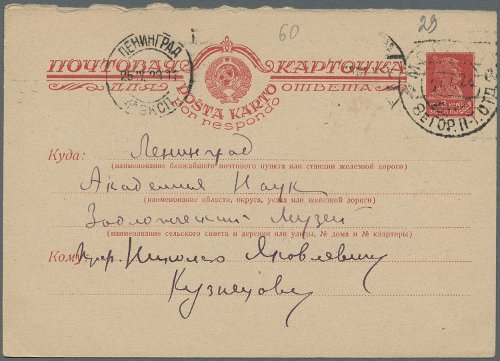 60
29
ЛЕНИНГРАД
ПОЧТОВАЯ КАРТОЧКА
ДЛЯ ОТВЕТА
POŜTA KARTO
por respondo
Куда: Ленинград
(наименование ближайшего почтового пункта или станции железной дороги)
Академия Наук
(наименование области, округа, уезда или железной дороги)
Зоологический Музей
(наименование сельского совета и деревни или улицы, № дома и № квартиры)
Кому: Николаю Яковлевичу
Кузнецову